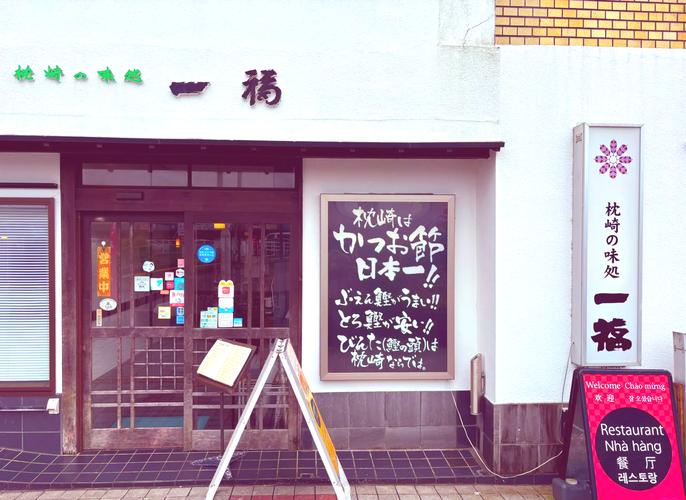 枕崎の味処
一福
営業中
枕崎は
かつお節
日本一!!
ぶえん鰹がうまい!!
とろ鰹が安い!!
びんた(鰹の頭)は
枕崎ならでは。
枕崎の味処
一福
Welcome Chao mừng
欢迎 잘 오셨습니다
Restaurant
Nhà hàng
餐厅
레스토랑